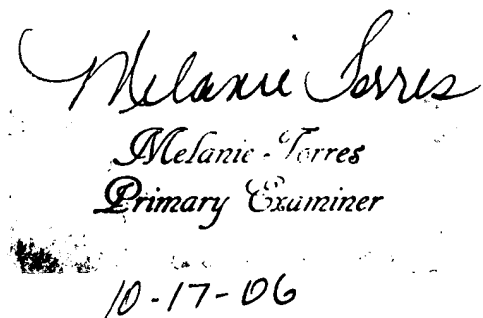 Melanie Torres
Melanie Torres
Primary Examiner
10-17-06